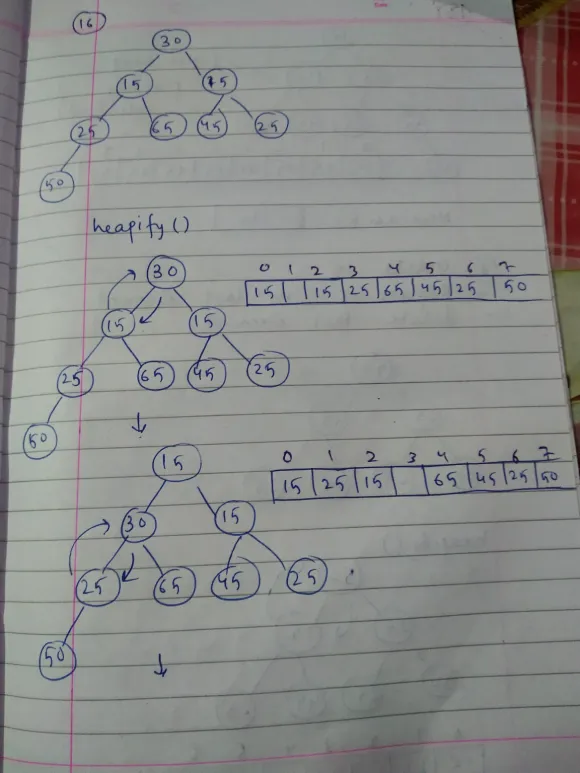 16
30
15 15
25 65 45 25
50
heapify()
30
0 1 2 3 4 5 6 7
15 15 25 65 45 25 50
15 15
25 65 45 25
50
15
0 1 2 3 4 5 6 7
15 25 15 65 45 25 50
30 15
25 65 45 25
50